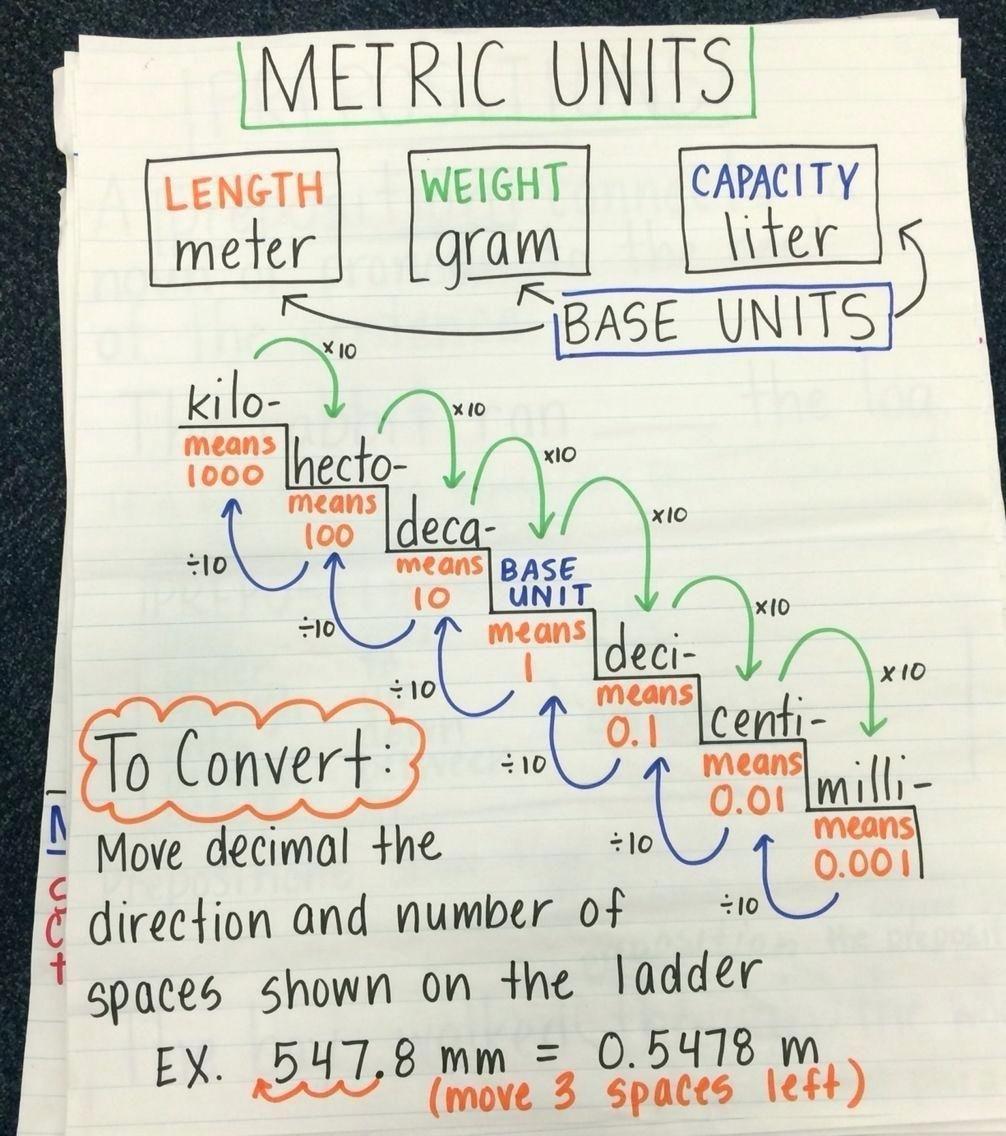 METRIC UNITS
LENGTH
meter
WEIGHT
gram
CAPACITY
liter
BASE UNITS
x10
kilo-
means
1000
x10
hecto-
means
100
x10
deca-
means
10
x10
BASE
UNIT
means
1
x10
deci-
means
0.1
x10
centi-
means
0.01
milli-
means
0.001
÷10
÷10
÷10
÷10
÷10
÷10
To Convert:
Move decimal the
direction and number of
spaces shown on the ladder
EX. 547.8 mm = 0.5478 m
(move 3 spaces left)